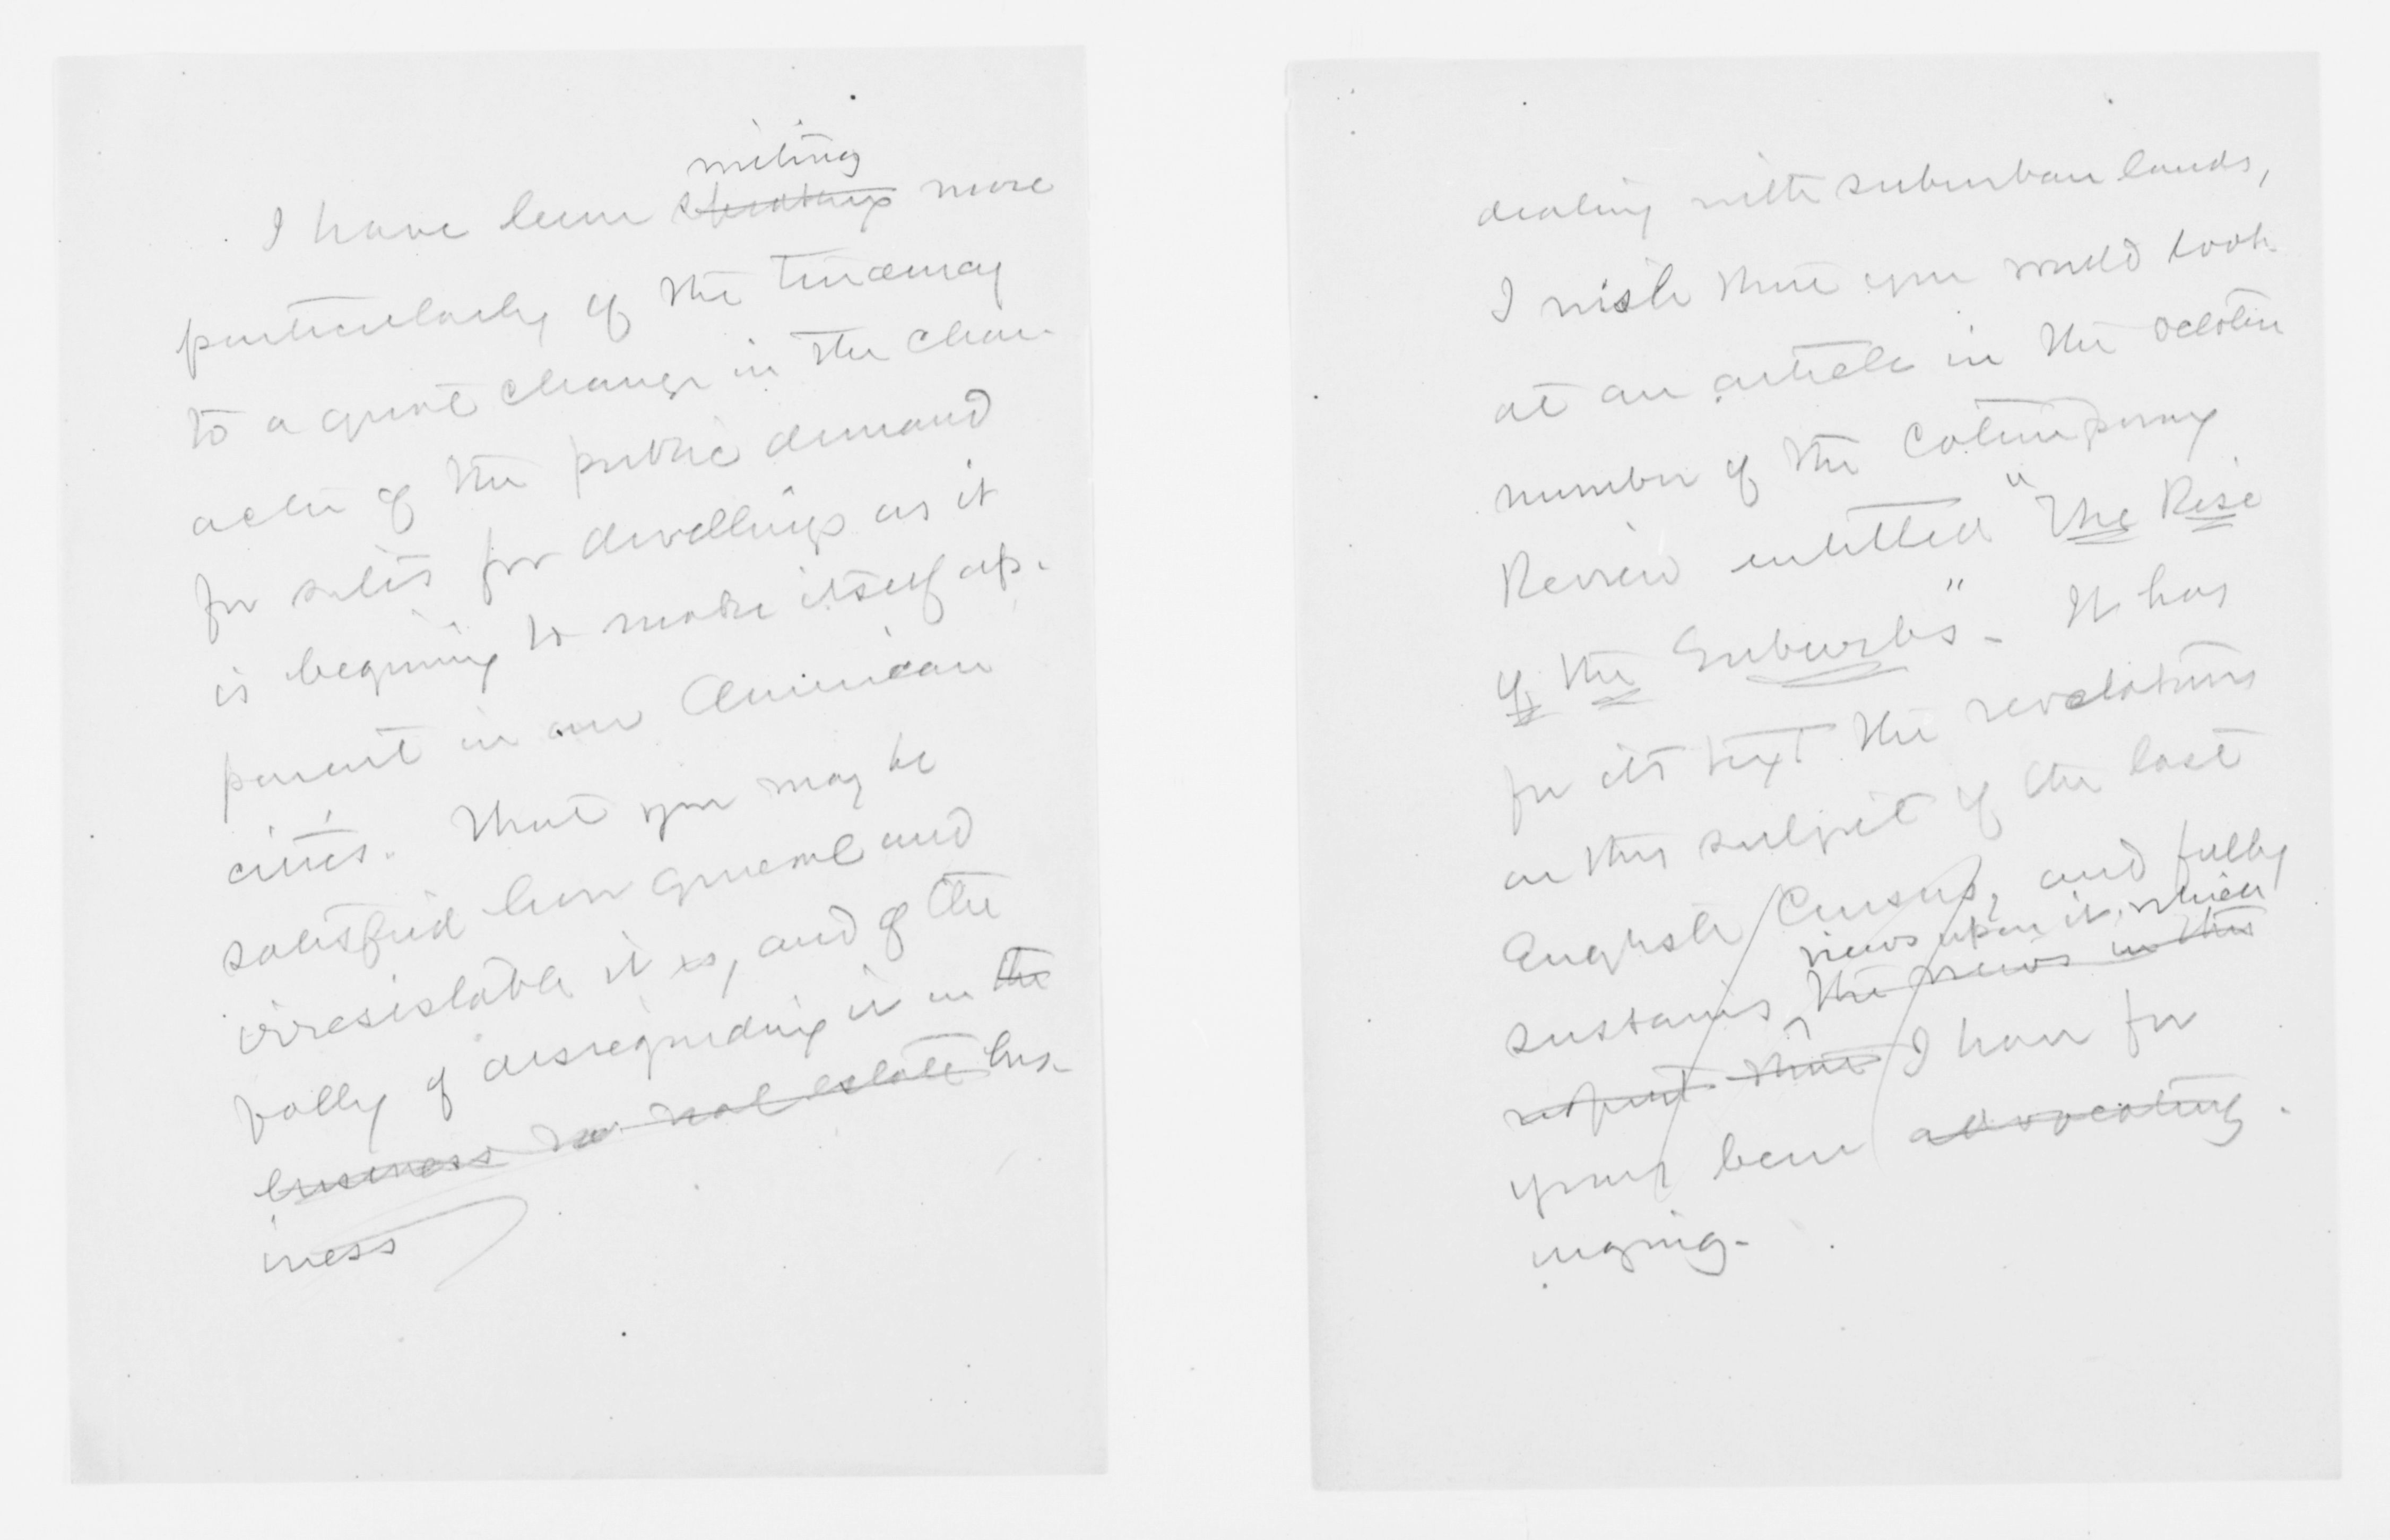 writing
I have been speaking more
particularly of the tendency
to a great change in the char-
acter of the public demand
for sites for dwellings as it
is begining to make itself ap-
parent in our American
cities. That you may be
satisfied how general and
irresistable it is, and of the
folly of disregarding it in the
business real estate bus-
iness
dealing with suburban lands,
I wish that you would look
at an article in the October
number of the Cotemporary
Review entitled "The Rise
of the Suburbs". It has
for its text the revelations
on this subject of the last
English Census, and fully
views upon it, which
sustains the views in this
respect that I have for
years been advocating.
urging.